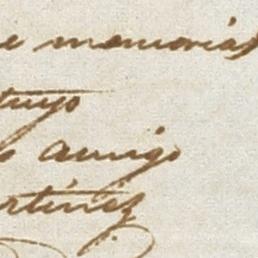 e memorias
tuyo
o amigo
rtínez